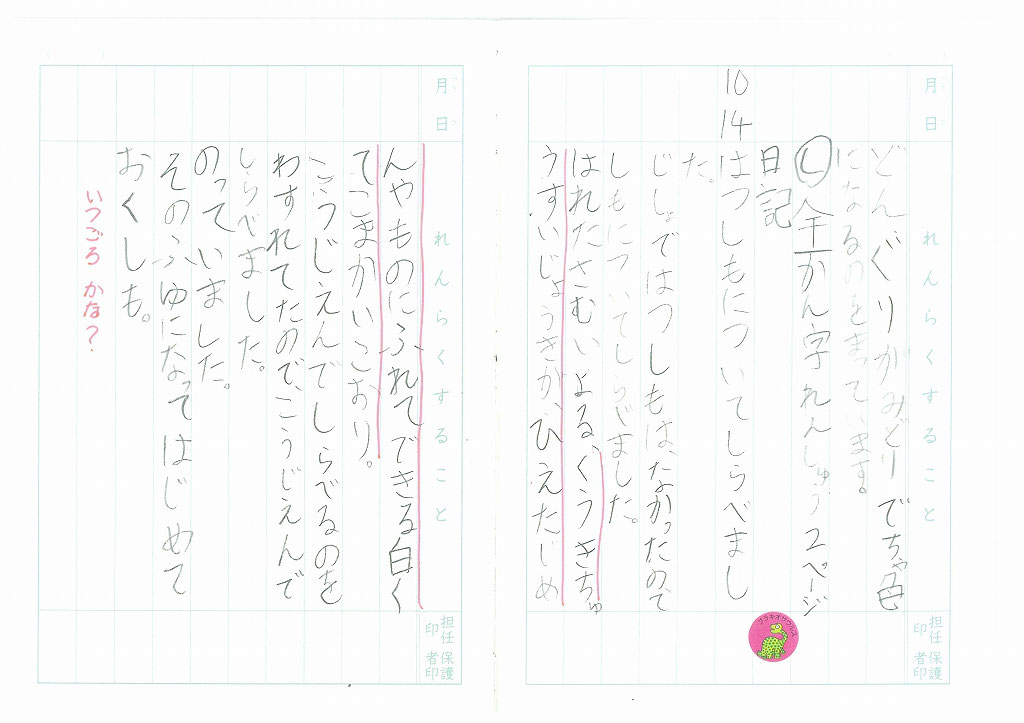 月 日
れんらくすること
担任印 保護者印
どんぐりがみどりでちゃ色
になるのをまっています。
し 全かん字れんしゅう2ページ
日記
10 14 はつしもについてしらべまし
た。
じしょではつしもは、なかったので
しもについてしらべました。
はれたさむいよる、くうきちゅ
うすいじょうきが、ひえたじめ
月 日
れんらくすること
担任印 保護者印
んやものにふれてできる白く
てこまかいこおり。
こうじえんでしらべるのを
わすれてたので、こうじえんで
しらべました。
のっていました。
そのふゆになってはじめて
おくしも。
いつごろ かな?
ブラキオサウルス